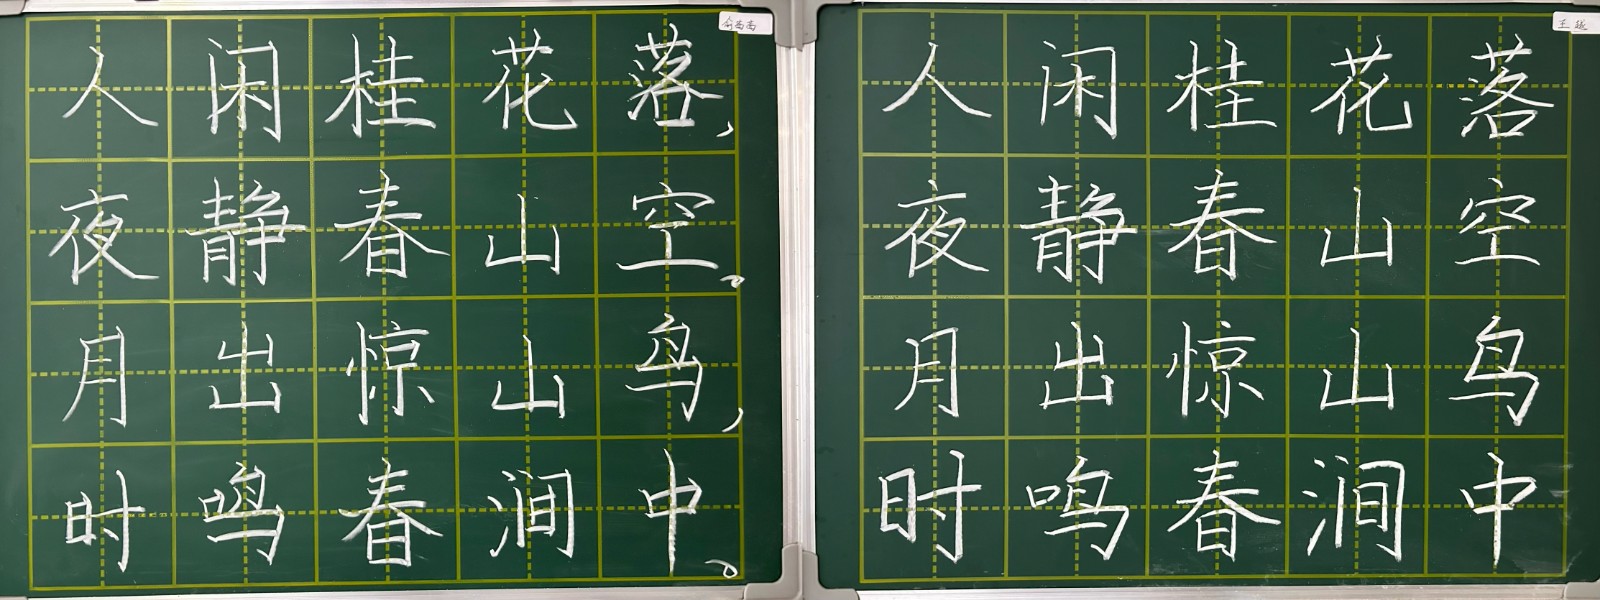 俞茜茜
人闲桂花落，
夜静春山空。
月出惊山鸟，
时鸣春涧中。
王越
人闲桂花落
夜静春山空
月出惊山鸟
时鸣春涧中